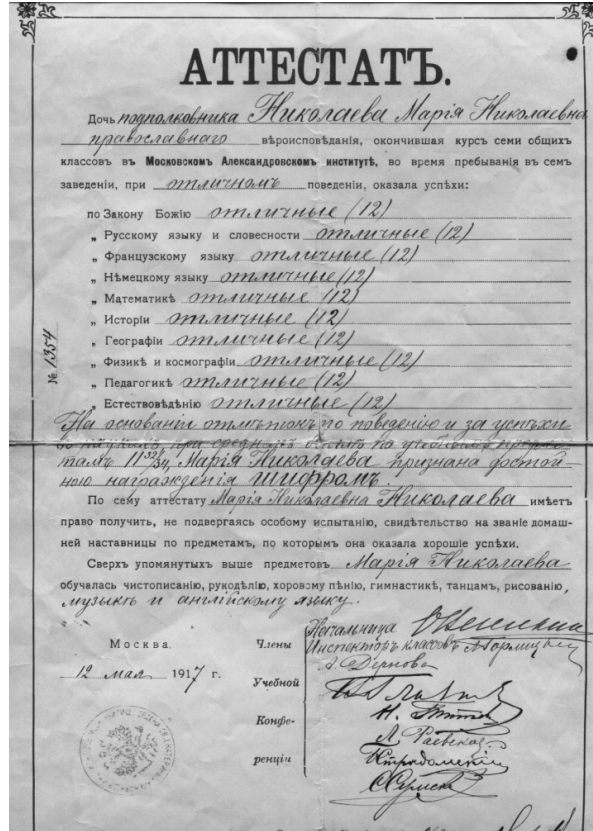 АТТЕСТАТЪ.
Дочь подполковника Николаева Марія Николаевна
православнаго вѣроисповѣданія, окончившая курсъ семи общихъ
классовъ въ Московскомъ Александровскомъ институтѣ, во время пребыванія въ семъ
заведеніи, при отличномъ поведеніи, оказала успѣхи:
по Закону Божію отличные (12)
„ Русскому языку и словесности отличные (12)
„ Французскому языку отличные (12)
„ Нѣмецкому языку отличные (12)
„ Математикѣ отличные (12)
„ Исторіи отличные (12)
„ Географіи отличные (12)
„ Физикѣ и космографіи отличные (12)
„ Педагогикѣ отличные (12)
„ Естествовѣдѣнію отличные (12)
№ 1354
На основаніи отмѣтокъ по поведенію и за успѣхи
при среднемъ баллѣ по учебнымъ предме-
тамъ 11 32/34, Марія Николаева признана достой-
ною награжденія шифромъ.
По сему аттестату Марія Николаевна Николаева имѣетъ
право получить, не подвергаясь особому испытанію, свидѣтельство на званіе домаш-
ней наставницы по предметамъ, по которымъ она оказала хорошіе успѣхи.
Сверхъ упомянутыхъ выше предметовъ Марія Николаева
обучалась чистописанію, рукодѣлію, хоровому пѣнію, гимнастикѣ, танцамъ, рисованію,
музыкѣ и англійскому языку.
Начальница
Москва. Члены Инспекторъ классовъ
А. Дернова
12 мая 1917 г. Учебной
Конфе-
Л. Раевская
ренціи